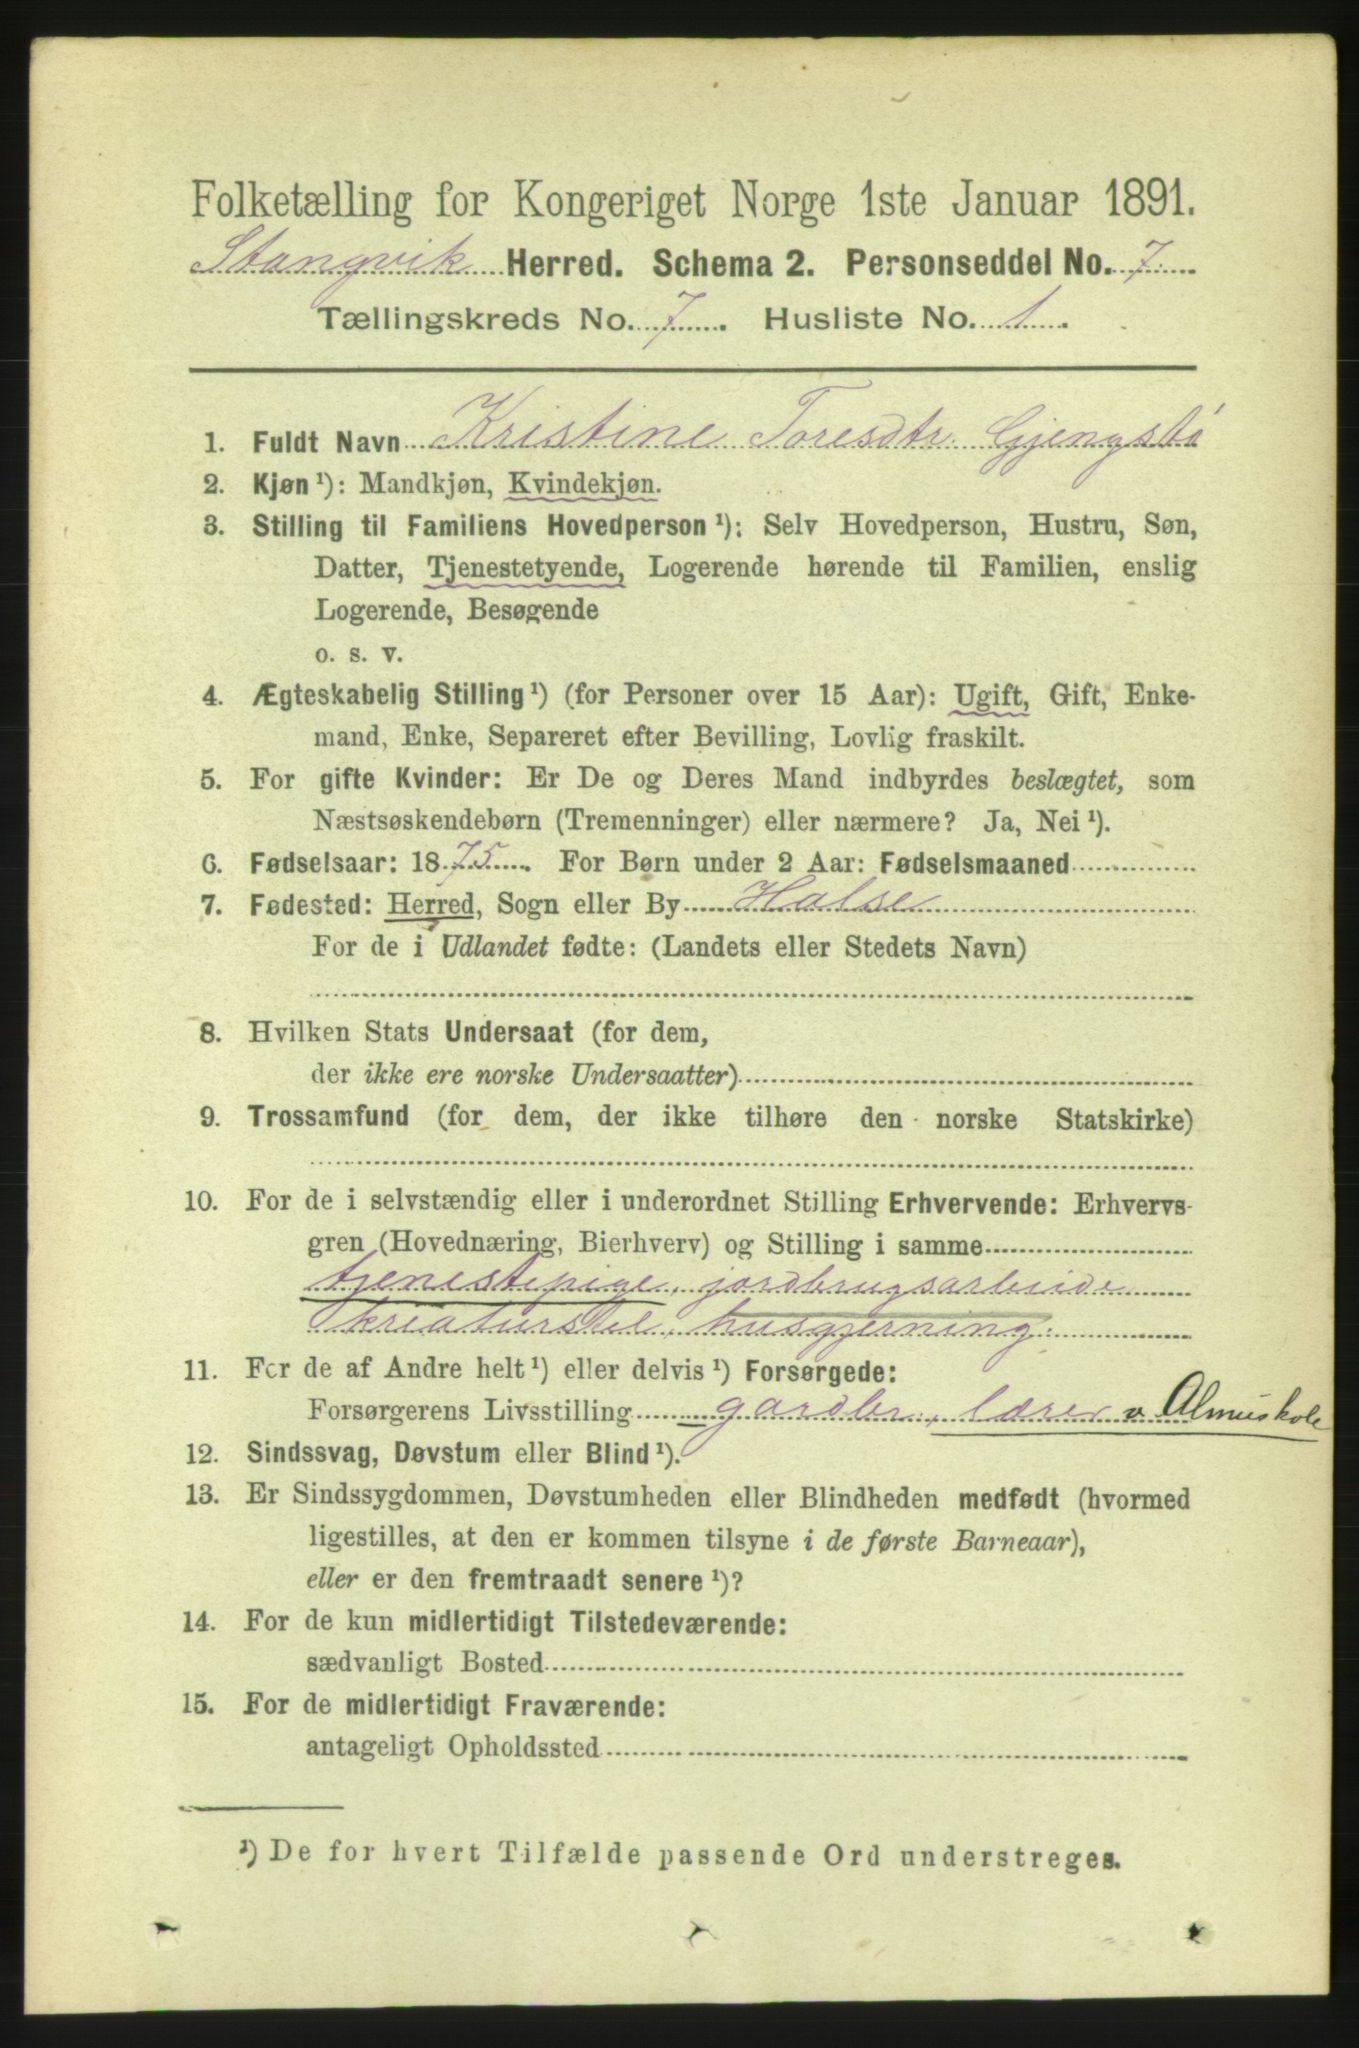 Folketælling for Kongeriget Norge 1ste Januar 1891.
Stangvik Herred. Schema 2. Personseddel No. 7
Tællingskreds No. 7. Husliste No. 1.
1. Fuldt Navn Kristine Toresdtr. Gjengstø
2. Kjøn ¹): Mandkjøn, Kvindekjøn.
3. Stilling til Familiens Hovedperson ¹): Selv Hovedperson, Hustru, Søn,
Datter, Tjenestetyende, Logerende hørende til Familien, enslig
Logerende, Besøgende
o. s. v.
4. Ægteskabelig Stilling ¹) (for Personer over 15 Aar): Ugift, Gift, Enke-
mand, Enke, Separeret efter Bevilling, Lovlig fraskilt.
5. For gifte Kvinder: Er De og Deres Mand indbyrdes beslægtet, som
Næstsøskendebørn (Tremenninger) eller nærmere? Ja, Nei ¹).
6. Fødselsaar: 1875. For Børn under 2 Aar: Fødselsmaaned
7. Fødested: Herred, Sogn eller By Halse
For de i Udlandet fødte: (Landets eller Stedets Navn)
8. Hvilken Stats Undersaat (for dem,
der ikke ere norske Undersaatter)
9. Trossamfund (for dem, der ikke tilhøre den norske Statskirke)
10. For de i selvstændig eller i underordnet Stilling Erhvervende: Erhvervs-
gren (Hovednæring, Bierhverv) og Stilling i samme
tjenestepige, jordbrugsarbeide
kreaturstel, husgjerning.
11. For de af Andre helt ¹) eller delvis ¹) Forsørgede:
Forsørgerens Livsstilling gardbr., lærer v Almueskole
12. Sindssvag, Døvstum eller Blind ¹).
13. Er Sindssygdommen, Døvstumheden eller Blindheden medfødt (hvormed
ligestilles, at den er kommen tilsyne i de første Barneaar),
eller er den fremtraadt senere ¹)?
14. For de kun midlertidigt Tilstedeværende:
sædvanligt Bosted
15. For de midlertidigt Fraværende:
antageligt Opholdssted
¹) De for hvert Tilfælde passende Ord understreges.